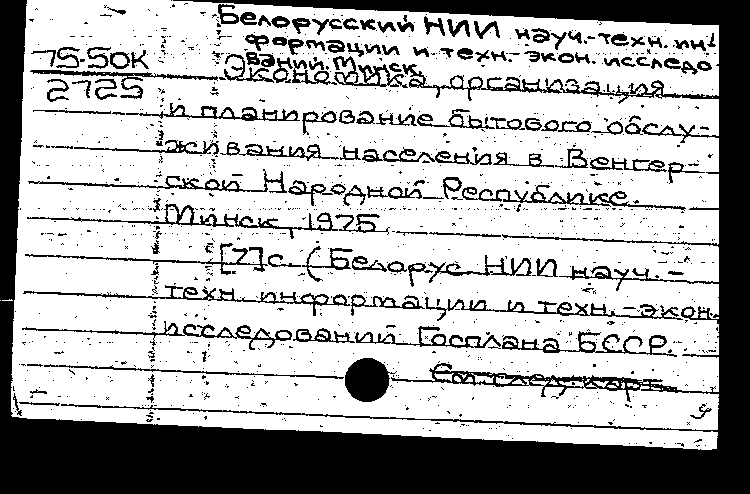 Белорусский НИИ науч.-техн. ин-
формации и техн.-экон. исследо-
ваний. Минск.
75-50К
2725
Экономика, организация
и планирование бытового обслу-
живания населения в Венгер-
ской Народной Республике.
Минск, 1975.
[7]с. (Белорус. НИИ науч.-
техн. информации и техн.-экон.
исследований Госплана БССР.
См. след. карт.